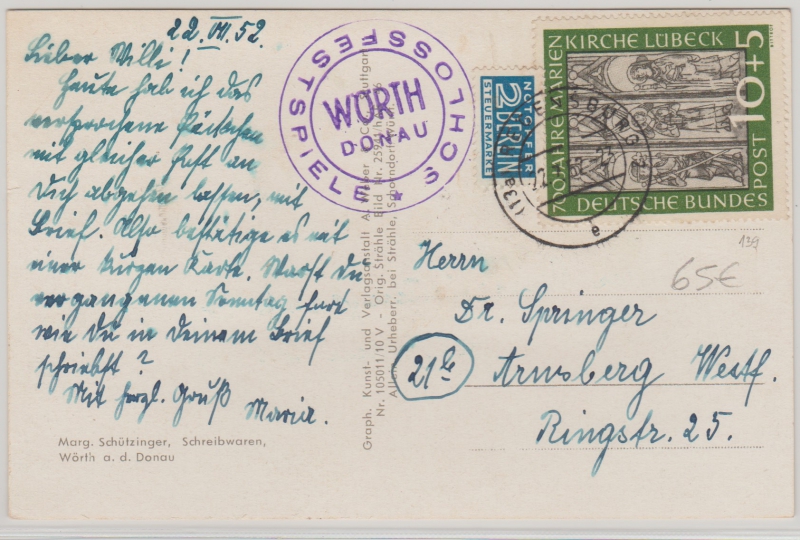 22.VII.52.
Lieber Willi!
Heute hab ich das
versprochene Päckchen
mit gleicher Post an
Dich abgehen lassen, mit
Brief. Also bestätige es mit
einer kurzen Karte. Warst Du
vergangenen Sonntag fort
wie Du in Deinem Brief
schriebst?
Mit herzl. Gruß
Maria.
Marg. Schützinger, Schreibwaren,
Wörth a. d. Donau
SCHLOSSFESTSPIELE
WÖRTH
DONAU
Graph. Kunst- und Verlagsanstalt
Nr. 105011/10 V - Orig. Strähle Bild Nr.
Allein. Urheberr. bei Strähle, Schorndorf/Wü
NOTOPFER
2 BERLIN
STEUERMARKE
700 JAHRE MARIEN
KIRCHE LÜBECK
10+5
DEUTSCHE BUNDES
POST
e
139
65€
Herrn
Dr. Springer
21b
Arnsberg Westf.
Ringstr. 25.